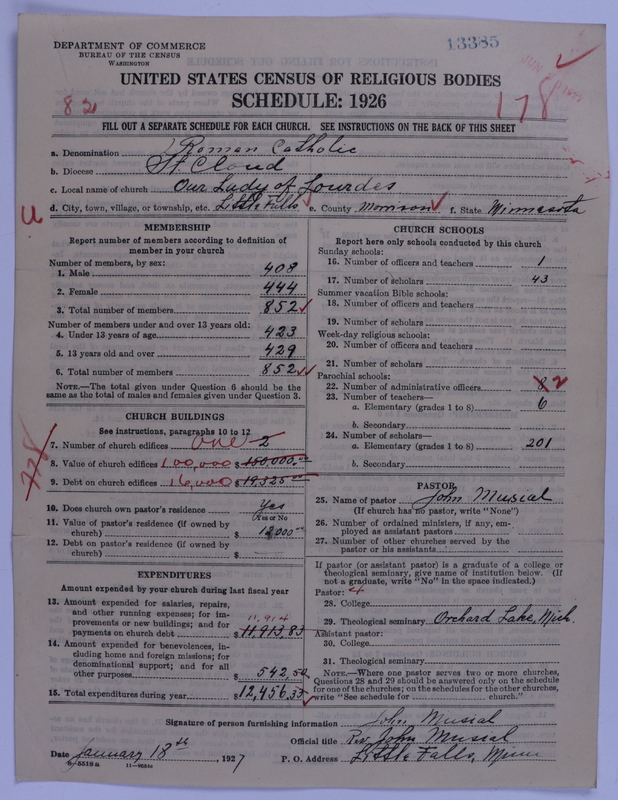 DEPARTMENT OF COMMERCE
BUREAU OF THE CENSUS
WASHINGTON
13385
UNITED STATES CENSUS OF RELIGIOUS BODIES
SCHEDULE: 1926
82
178
FILL OUT A SEPARATE SCHEDULE FOR EACH CHURCH. SEE INSTRUCTIONS ON THE BACK OF THIS SHEET
a. Denomination Roman Catholic
b. Diocese St Cloud
c. Local name of church Our Lady of Lourdes
d. City, town, village, or township, etc. Little Falls e. County Morrison f. State Minnesota
MEMBERSHIP
Report number of members according to definition of
member in your church
Number of members, by sex:
1. Male 408
2. Female 444
3. Total number of members 852
Number of members under and over 13 years old:
4. Under 13 years of age 423
5. 13 years old and over 429
6. Total number of members 852
NOTE.—The total given under Question 6 should be the
same as the total of males and females given under Question 3.
CHURCH BUILDINGS
See instructions, paragraphs 10 to 12
7. Number of church edifices one 2
8. Value of church edifices 100,000 $ 150,000.00
9. Debt on church edifices 16,000 $ 19,325.00
10. Does church own pastor's residence Yes
(Yes or No)
11. Value of pastor's residence (if owned by
church) $ 12,000.00
12. Debt on pastor's residence (if owned by
church) $
EXPENDITURES
Amount expended by your church during last fiscal year
13. Amount expended for salaries, repairs,
and other running expenses; for im-
provements or new buildings; and for
payments on church debt 11,914 $ 11,913,83
14. Amount expended for benevolences, in-
cluding home and foreign missions; for
denominational support; and for all
other purposes $ 542,50
15. Total expenditures during year $ 12,456.33
CHURCH SCHOOLS
Report here only schools conducted by this church
Sunday schools:
16. Number of officers and teachers 1
17. Number of scholars 43
Summer vacation Bible schools:
18. Number of officers and teachers
19. Number of scholars
Week-day religious schools:
20. Number of officers and teachers
21. Number of scholars
Parochial schools:
22. Number of administrative officers 8 2
23. Number of teachers—
a. Elementary (grades 1 to 8) 6
b. Secondary
24. Number of scholars—
a. Elementary (grades 1 to 8) 201
b. Secondary
PASTOR
25. Name of pastor John Musial
(If church has no pastor, write "None")
26. Number of ordained ministers, if any, em-
ployed as assistant pastors
27. Number of other churches served by the
pastor or his assistants
If pastor (or assistant pastor) is a graduate of a college or
theological seminary, give name of institution below. (If
not a graduate, write "No" in the space indicated.)
Pastor: 4
28. College
29. Theological seminary Orchard Lake, Mich.
Assistant pastor:
30. College
31. Theological seminary
NOTE.—Where one pastor serves two or more churches,
Questions 28 and 29 should be answered only on the schedule
for one of the churches; on the schedules for the other churches,
write "See schedule for church."
Signature of person furnishing information John Musial
Official title Rev. John Musial
Date January 18th, 1927 P. O. Address Little Falls, Minn
8-5518a 11-9651c